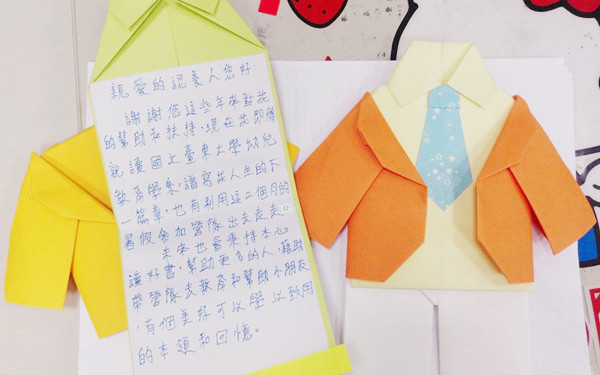 親愛的認養人您好:
謝謝您這些年來對我
的幫助和扶持,現在我即將
就讀國立臺東大學幼兒
教育學系,譜寫我人生的下
一篇章,也有利用這二個月的
暑假參加營隊出去走走。
未來也會秉持本心
讀好書,幫助更多的人,藉助
帶營隊去教育和幫助小朋友
,有個美好可以學以致用
的本領和回憶。